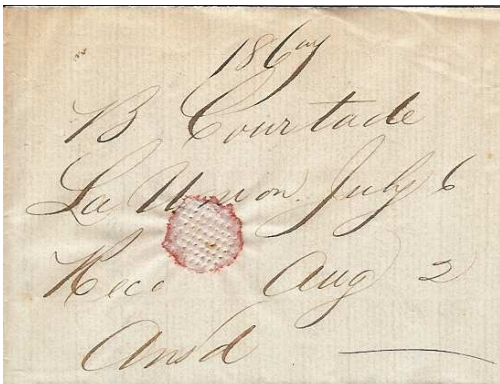 B Courtade
La Union July 6
Rec. Aug 2
Ansd